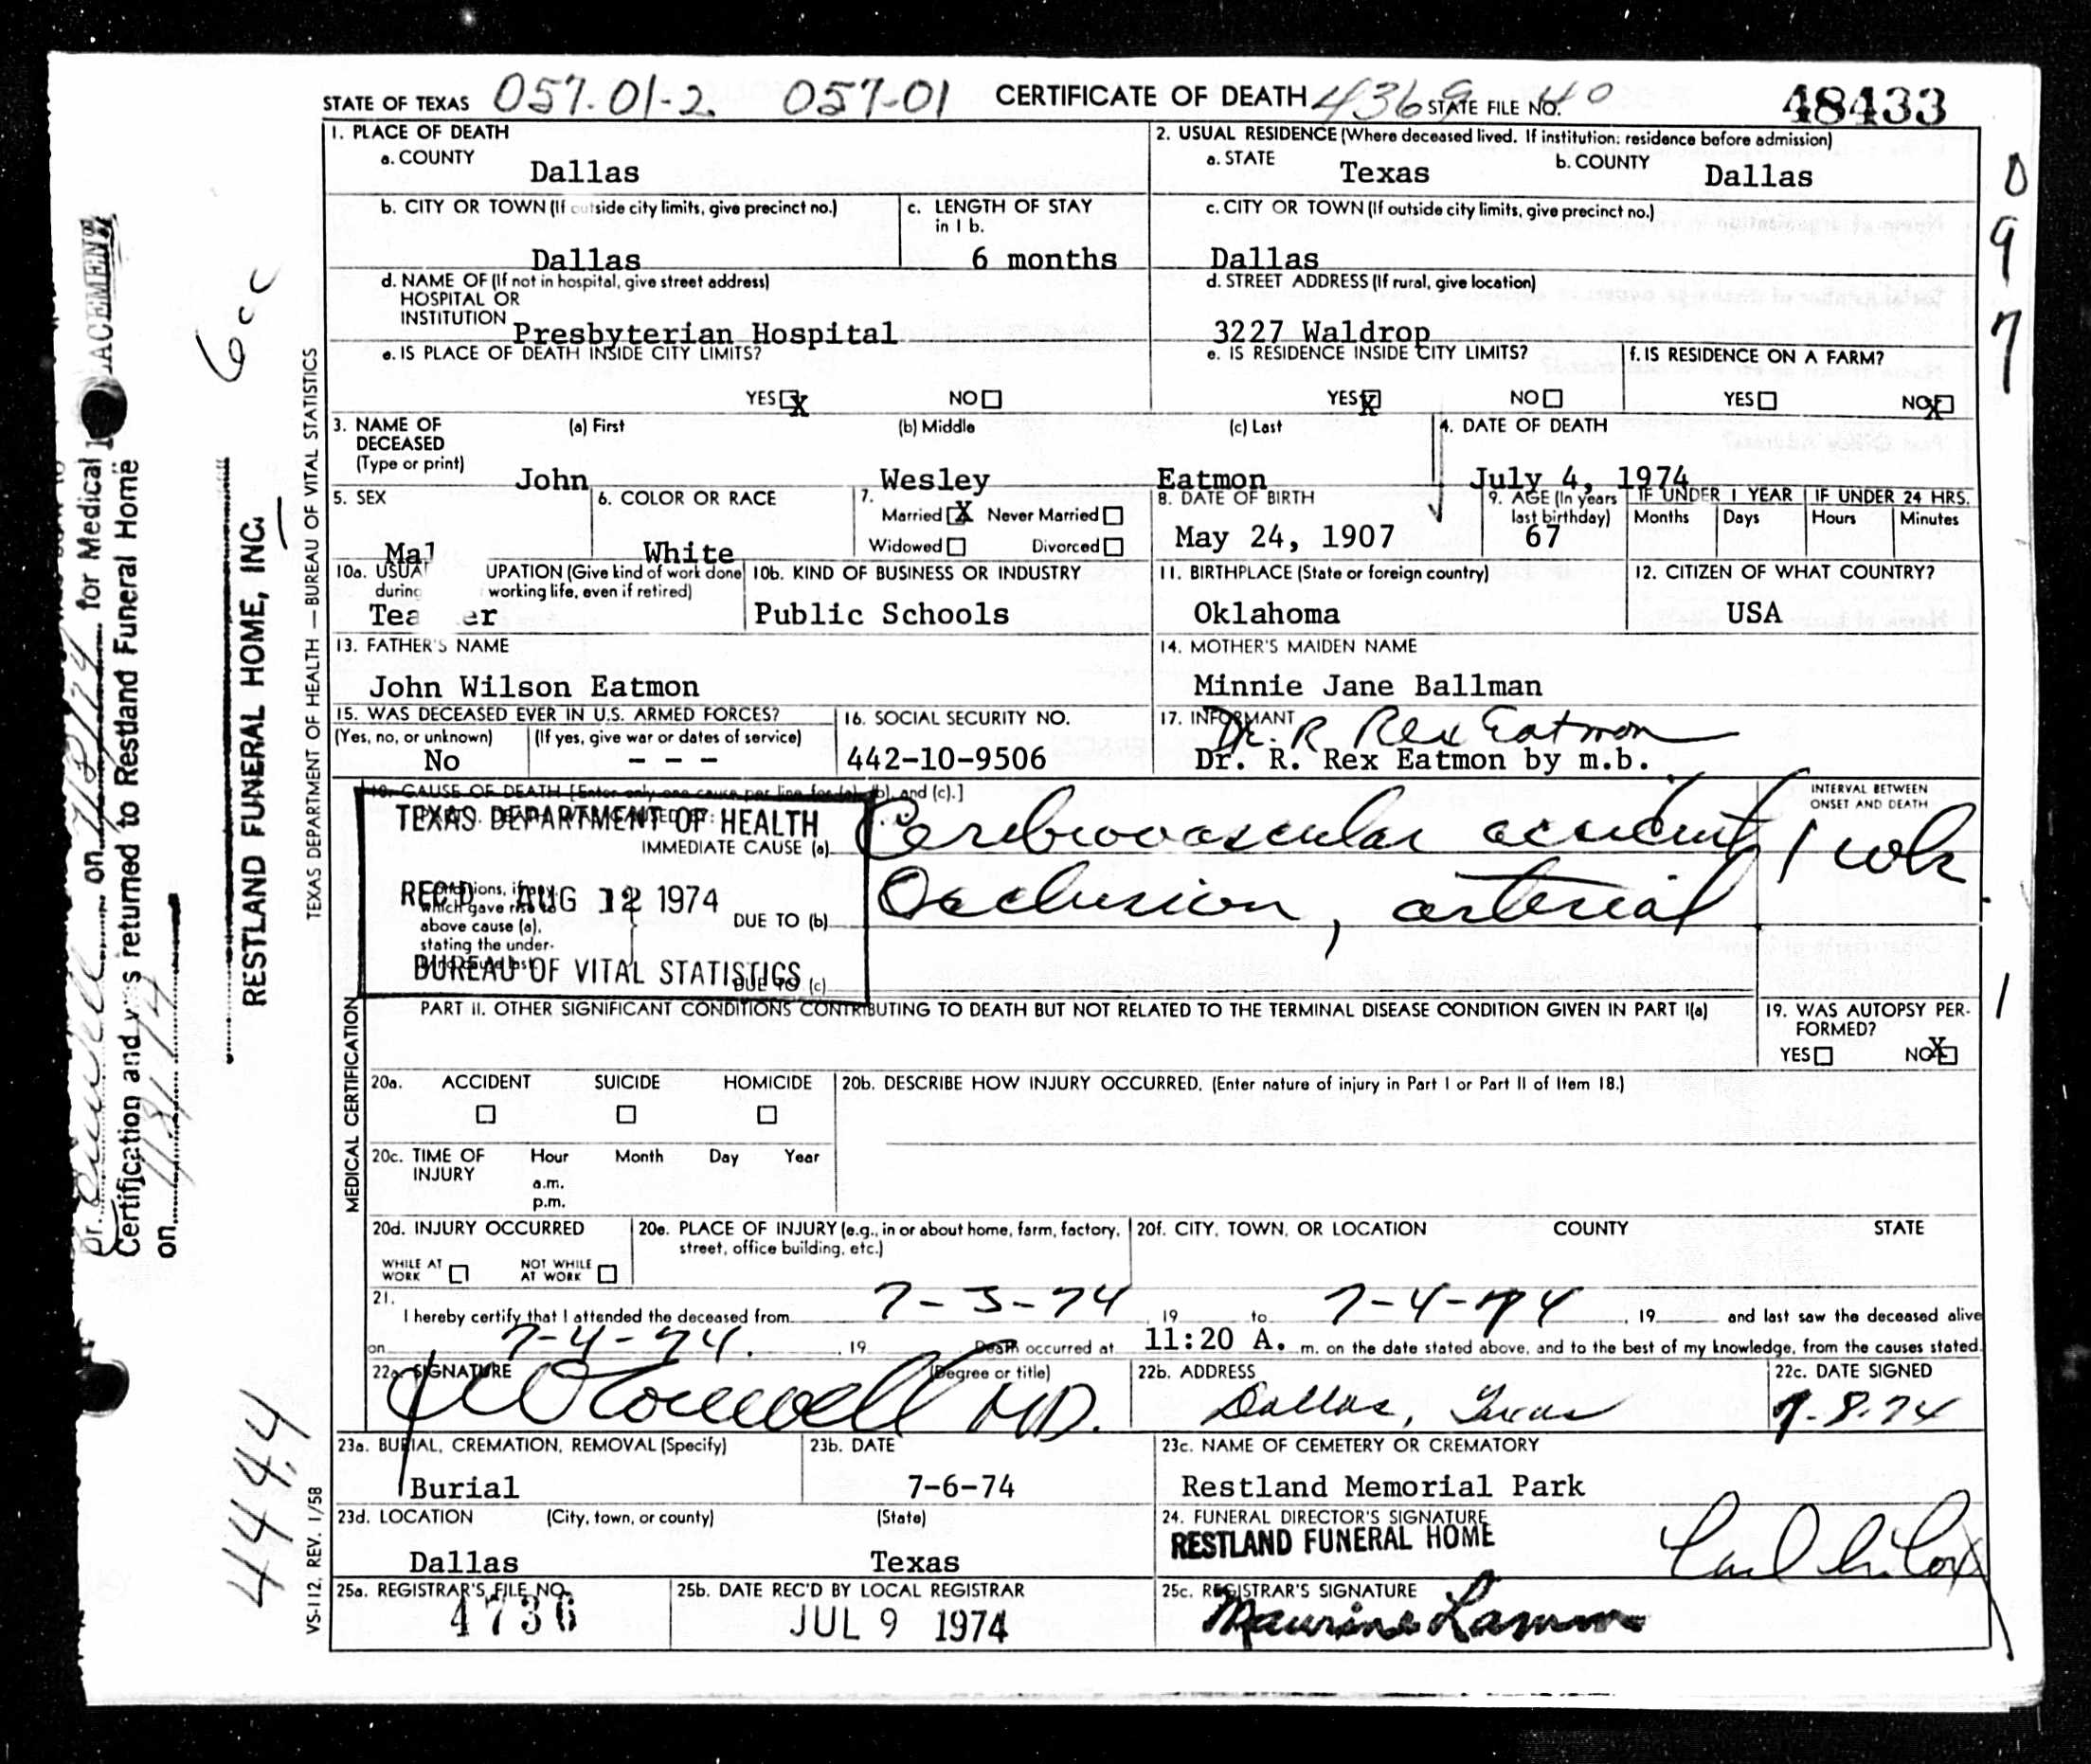 STATE OF TEXAS 057-01-2 057-01 CERTIFICATE OF DEATH 4369 STATE FILE NO. 40 48433
1. PLACE OF DEATH
a. COUNTY
Dallas
2. USUAL RESIDENCE (Where deceased lived. If institution: residence before admission)
a. STATE Texas b. COUNTY Dallas
b. CITY OR TOWN (If outside city limits, give precinct no.)
Dallas
c. LENGTH OF STAY
in 1 b.
6 months
c. CITY OR TOWN (If outside city limits, give precinct no.)
Dallas
d. NAME OF (If not in hospital, give street address)
HOSPITAL OR
INSTITUTION Presbyterian Hospital
d. STREET ADDRESS (If rural, give location)
3227 Waldrop
e. IS PLACE OF DEATH INSIDE CITY LIMITS?
YES X NO
e. IS RESIDENCE INSIDE CITY LIMITS?
YES X NO
f. IS RESIDENCE ON A FARM?
YES NO X
3. NAME OF
DECEASED
(Type or print)
(a) First (b) Middle (c) Last
John Wesley Eatmon
4. DATE OF DEATH
July 4, 1974
5. SEX
Mal
6. COLOR OR RACE
White
7.
Married X Never Married
Widowed Divorced
8. DATE OF BIRTH
May 24, 1907
9. AGE (In years
last birthday)
67
IF UNDER 1 YEAR
Months Days
IF UNDER 24 HRS.
Hours Minutes
10a. USUA UPATION (Give kind of work done
during working life, even if retired)
Tea er
10b. KIND OF BUSINESS OR INDUSTRY
Public Schools
11. BIRTHPLACE (State or foreign country)
Oklahoma
12. CITIZEN OF WHAT COUNTRY?
USA
13. FATHER'S NAME
John Wilson Eatmon
14. MOTHER'S MAIDEN NAME
Minnie Jane Ballman
15. WAS DECEASED EVER IN U.S. ARMED FORCES?
(Yes, no, or unknown) (If yes, give war or dates of service)
No - - -
16. SOCIAL SECURITY NO.
442-10-9506
17. INFORMANT
Dr. R Rex Eatmon
Dr. R. Rex Eatmon by m.b.
18. CAUSE OF DEATH [Enter only one cause per line for (a), (b), and (c).]
TEXAS DEPARTMENT OF HEALTH
REC'D AUG 12 1974
BUREAU OF VITAL STATISTICS
IMMEDIATE CAUSE (a) Cerebrovascular accident
Conditions, if any,
which gave rise to
above cause (a),
stating the under-
DUE TO (b) Occlusion, arterial
DUE TO (c)
INTERVAL BETWEEN
ONSET AND DEATH
1 wk
PART II. OTHER SIGNIFICANT CONDITIONS CONTRIBUTING TO DEATH BUT NOT RELATED TO THE TERMINAL DISEASE CONDITION GIVEN IN PART I(a)
19. WAS AUTOPSY PER-
FORMED?
YES NO X
20a. ACCIDENT SUICIDE HOMICIDE
20b. DESCRIBE HOW INJURY OCCURRED. (Enter nature of injury in Part I or Part II of Item 18.)
20c. TIME OF
INJURY
Hour Month Day Year
a.m.
p.m.
20d. INJURY OCCURRED
WHILE AT
WORK
NOT WHILE
AT WORK
20e. PLACE OF INJURY (e.g., in or about home, farm, factory,
street, office building, etc.)
20f. CITY, TOWN, OR LOCATION COUNTY STATE
21.
I hereby certify that I attended the deceased from 7-3-74, 19 to 7-4-74, 19 and last saw the deceased alive
on 7-4-74, 19 Death occurred at 11:20 A. m. on the date stated above, and to the best of my knowledge, from the causes stated.
22a. SIGNATURE (Degree or title)
MD.
22b. ADDRESS
Dallas, Texas
22c. DATE SIGNED
7-8-74
23a. BURIAL, CREMATION, REMOVAL (Specify)
Burial
23b. DATE
7-6-74
23c. NAME OF CEMETERY OR CREMATORY
Restland Memorial Park
23d. LOCATION (City, town, or county) (State)
Dallas Texas
24. FUNERAL DIRECTOR'S SIGNATURE
RESTLAND FUNERAL HOME
25a. REGISTRAR'S FILE NO.
4736
25b. DATE REC'D BY LOCAL REGISTRAR
JUL 9 1974
25c. REGISTRAR'S SIGNATURE
Maurine Lamm
MEDICAL CERTIFICATION
TEXAS DEPARTMENT OF HEALTH — BUREAU OF VITAL STATISTICS
VS-112, REV. 1/58
RESTLAND FUNERAL HOME, INC.
Dr. on 7/8/74 for Medical
Certification and was returned to Restland Funeral Home
on
444.4
0
9
7
1